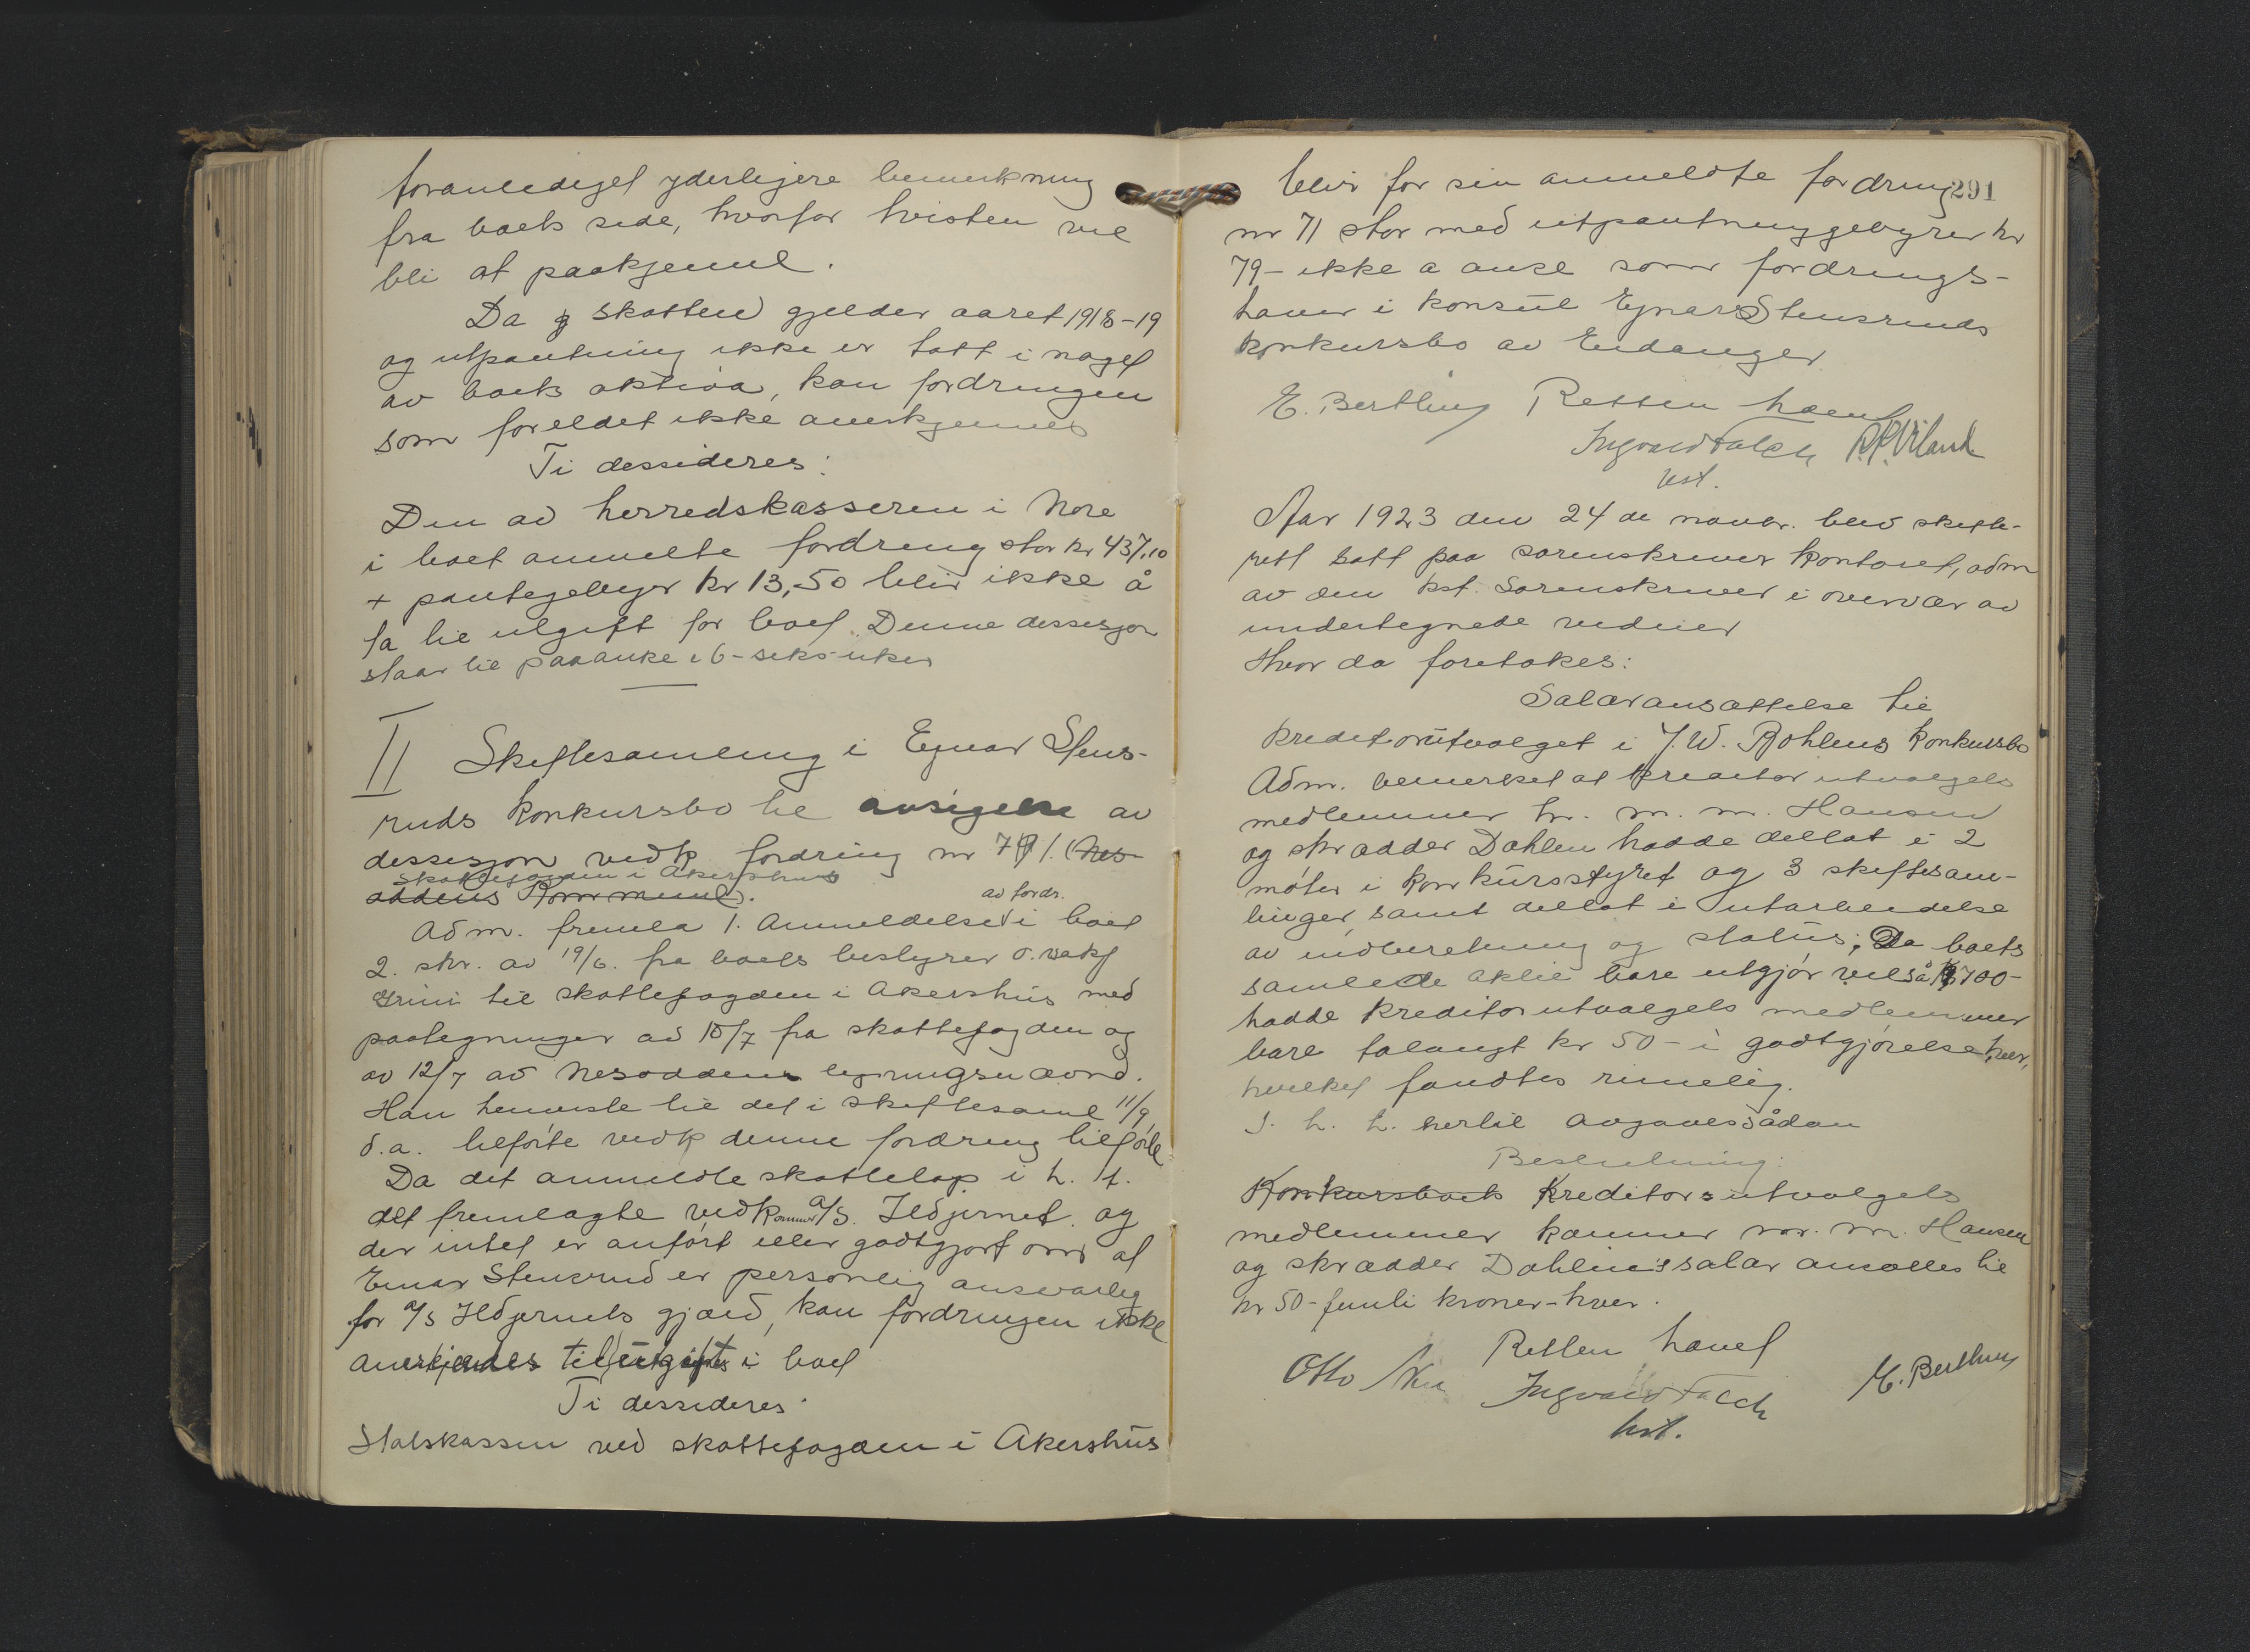 foranlediget yderligere bemerkning
fra boets side, hvorfor tvisten vil
bli at paakjenne.
Da skatten gjelder aaret 1918-19
og utpantning ikke er tatt i noget
av boets aktiva, kan fordringen
som foreldet ikke anerkjennes
Ti dessideres:
Den av herredskasseren i Nore
i boet anmelte fordring stor kr 437,10
+ pantegebyr kr 13,50 blir ikke å
ta til utgift for boet. Denne dessisjon
staar til paaanke i 6-seks-uker
II Skiftesamling i Ejnar Stens-
ruds konkursbo til avsigelse av
dessisjon vedk fordring nr 71. (Nes-
Skattefogden i Akershus
oddens Kommune).
av fordr.
Adm. fremla 1. Anmeldelse i boet
2. skr. av 19/6. fra boets bestyrer o.r.sakf
Grini til skattefogden i Akershus med
paategninger av 10/7 fra skattefogden og
av 12/7 av Nesoddens ligningsnævnd.
Han henviste til det i skiftesaml 11/9
d.a. tilførte vedk denne fordring tilførte
Da det anmeldte skattelop i h. t.
det fremlagte vedkommer a/s. Ildjernet og
der intet er anført eller godtgjort om at
Einar Stensrud er personlig ansvarlig
for a/s Ildjernets gjæld, kan fordringen ikke
anerkjendes til utgift i boet
Ti dessideres:
Statskassen ved skattefogden i Akershus
291
blir for sin anmeldte fordring
nr 71 stor med utpantningsgebyrer kr
79- ikke a anse som fordrings-
haver i konsul Ejnar Stensruds
konkursbo av Eidanger
E. Berthling Retten hævet
Ingvald Falch
kst.
Aar 1923 den 24 de novbr. blev skifte-
rett satt paa sorenskriver kontoret, adm
av den kst. sorenskriver i overvær av
undertegnede vidner
Hvor da foretokes:
Salæransættelse til
kreditorutvalget i J. W. Bohlens konkursbo
Adm. bemerket at kreditorutvalgets
medlemmer hr. m. m. Hansen
og skrædder Dahlen hadde deltat i 2
møter i konkursstyret og 3 skiftesam-
linger, samt deltat i utarbeidelse
av indberetning og status; Da boets
samlede aktiv bare utgjør vel så kr 700-
hadde kreditorutvalgets medlemmer
bare forlangt kr 50- i godtgjørelse hver,
hvilket fandtes rimelig.
I. h. t. hertil avgaves sådan
Beslutning:
Konkursboets Kreditorsutvalgets
medlemmer kommer m. m. Hansen
og skrædder Dahlens salær ansættes til
kr 50- femti kroner - hver.
Retten hævet
Otto Ingvald Falch E. Berthling
kst.